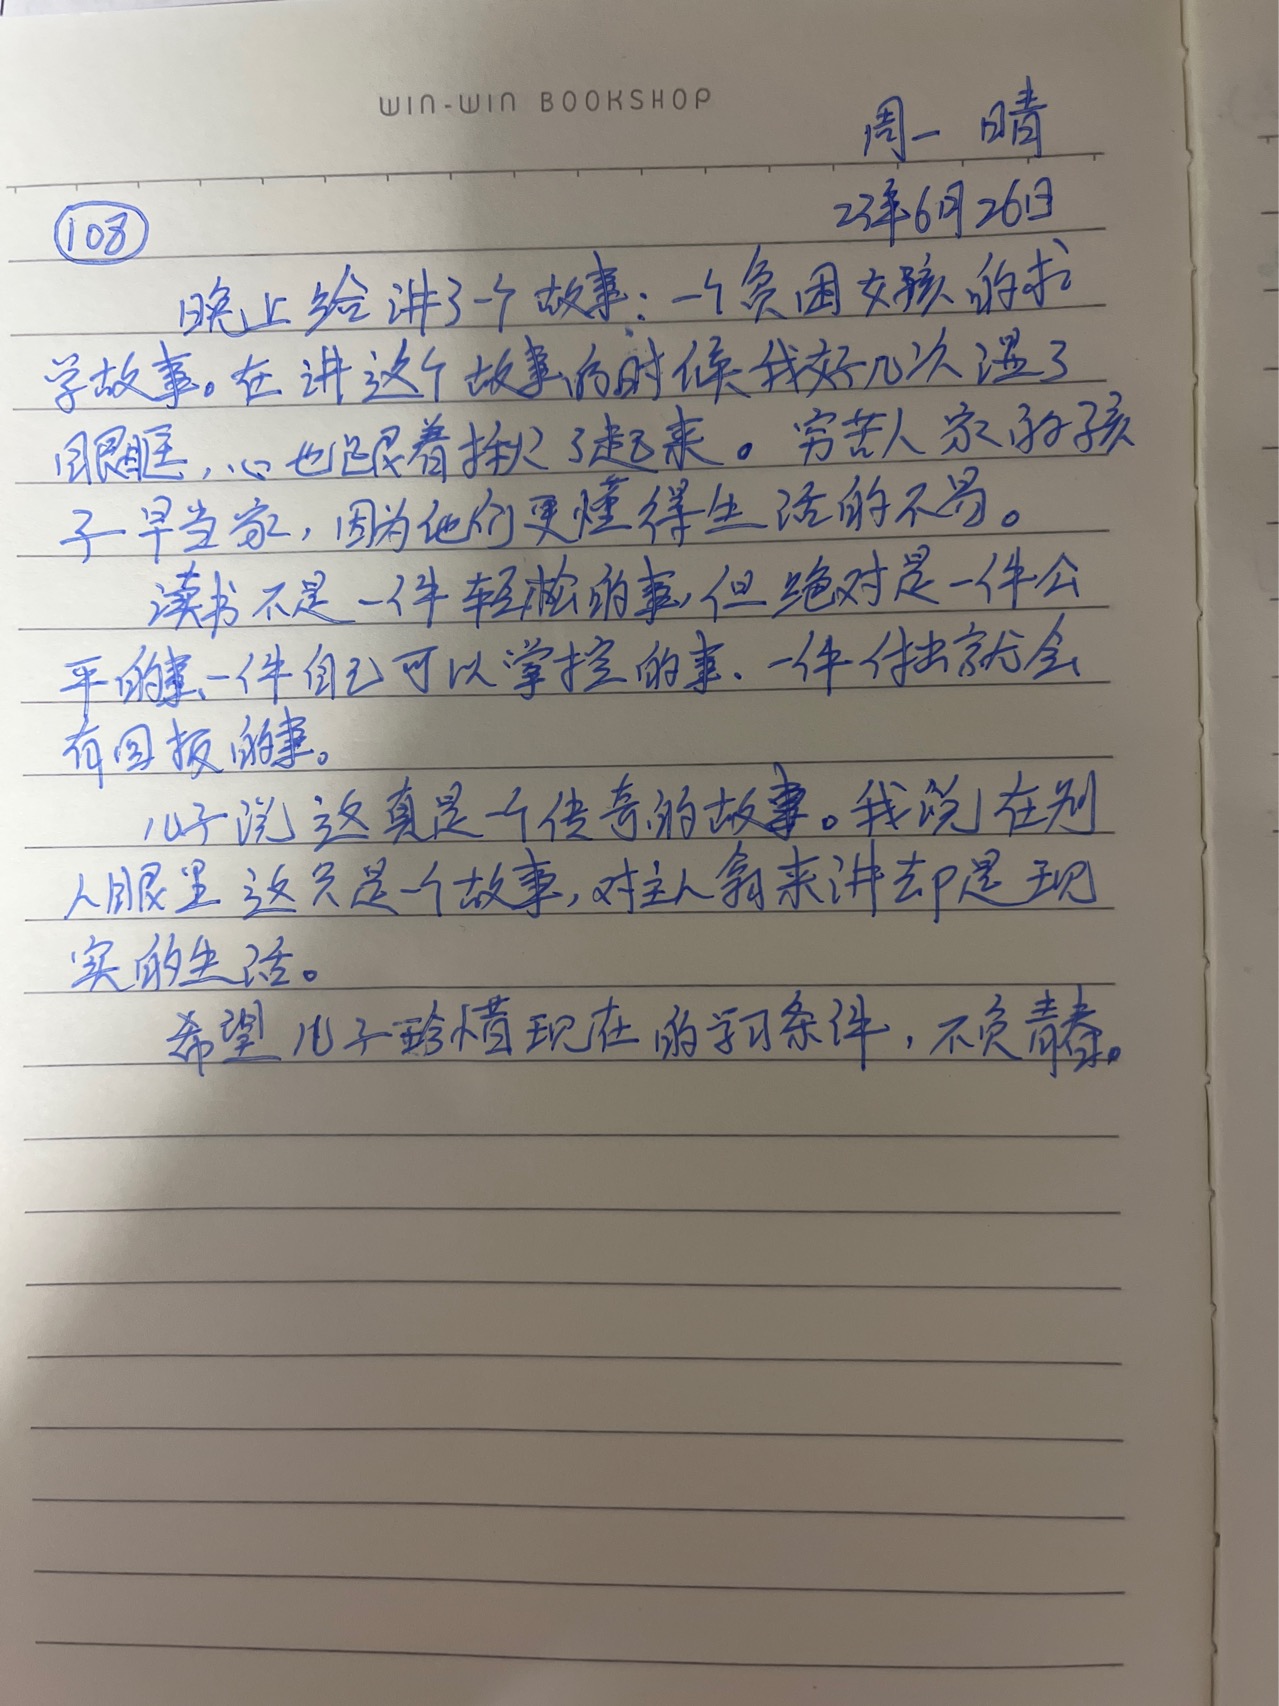 WIN-WIN BOOKSHOP
周一 晴
23年6月26日
108
晚上给讲了一个故事:一个贫困女孩的求
学故事。在讲这个故事的时候我好几次湿了
眼眶,心也跟着揪了起来。穷苦人家的孩
子早当家,因为他们更懂得生活的不易。
读书不是一件轻松的事,但绝对是一件公
平的事、一件自己可以掌控的事、一件付出就会
有回报的事。
儿子说这真是一个传奇的故事。我说在别
人眼里这只是一个故事,对主人翁来讲却是现
实的生活。
希望儿子珍惜现在的学习条件,不负青春。